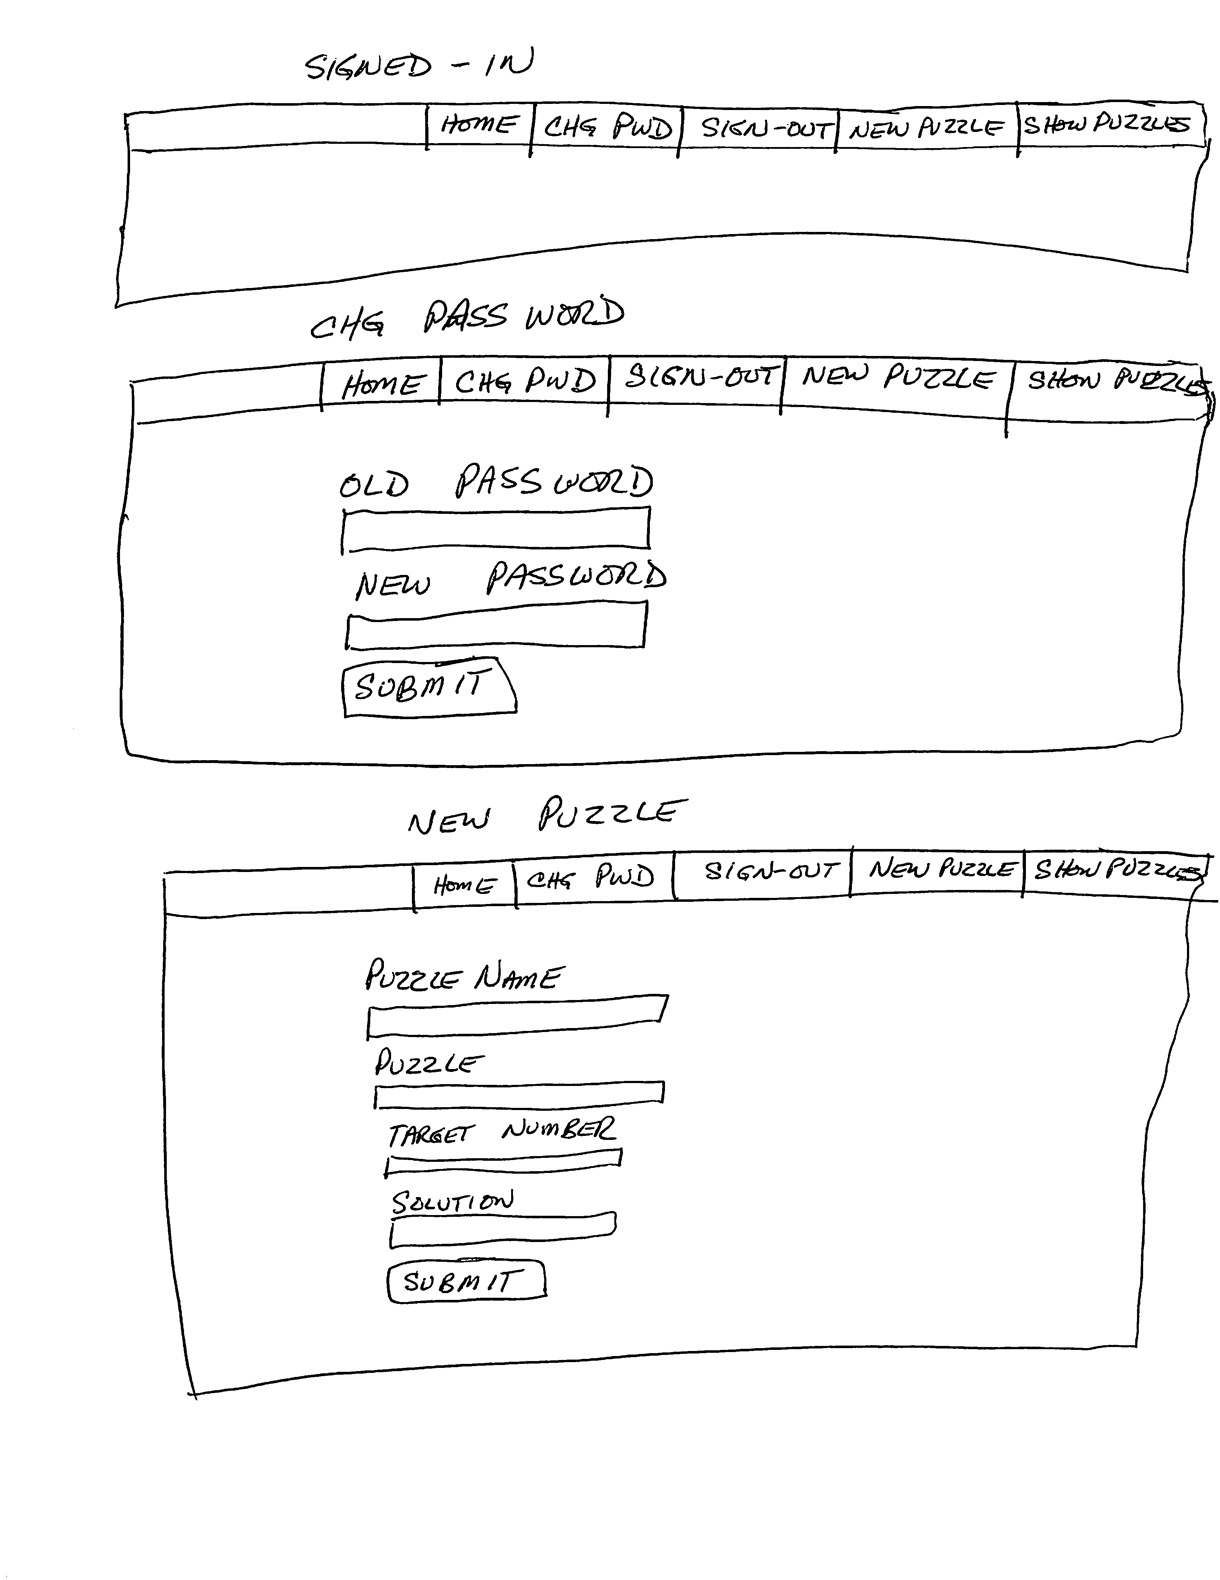 SIGNED - IN
HOME CHG PWD SIGN-OUT NEW PUZZLE SHOW PUZZLES
CHG PASSWORD
HOME CHG PWD SIGN-OUT NEW PUZZLE SHOW PUZZLES
OLD PASSWORD
NEW PASSWORD
SUBMIT
NEW PUZZLE
HOME CHG PWD SIGN-OUT NEW PUZZLE SHOW PUZZLES
PUZZLE NAME
PUZZLE
TARGET NUMBER
SOLUTION
SUBMIT